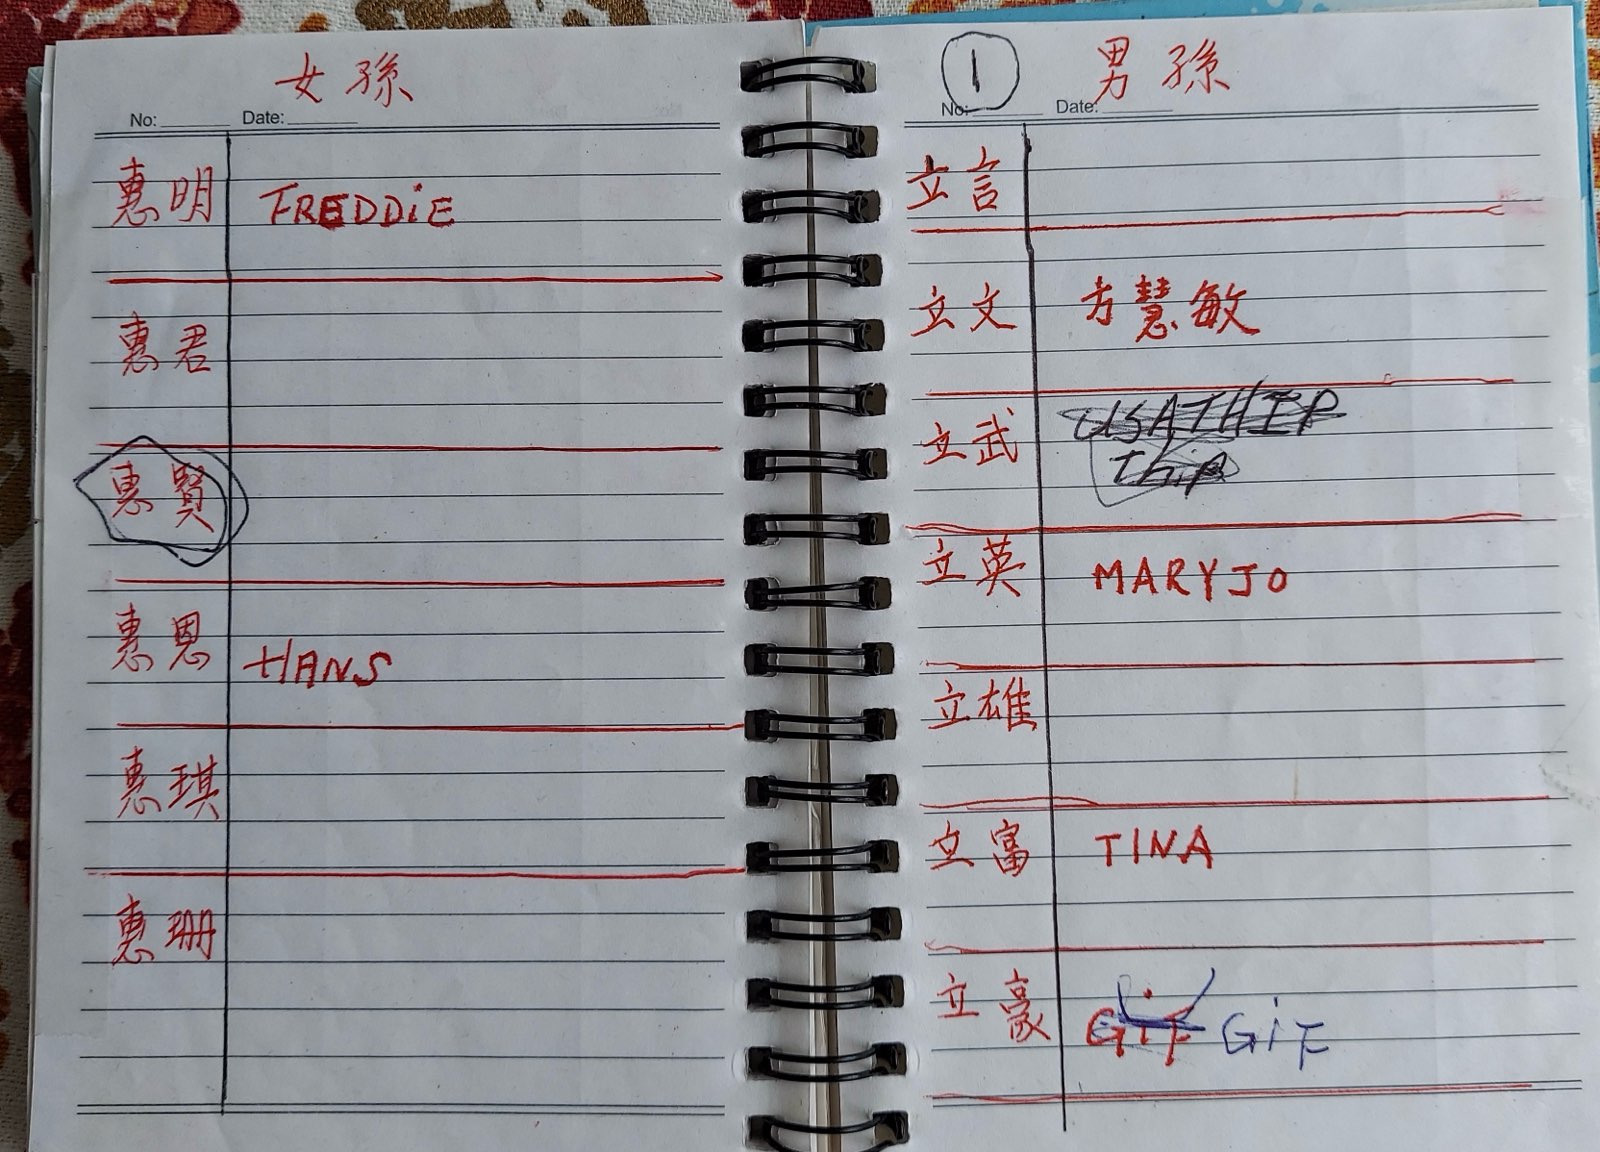 女孫
No: Date:
惠明 FREDDiE
惠君
惠賢
惠恩 HANS
惠琪
惠珊
1 男孫
No: Date:
立言
立文 方慧敏
立武 USATHIP
Thip
立英 MARYJO
立雄
立富 TINA
立豪 GiF GiF